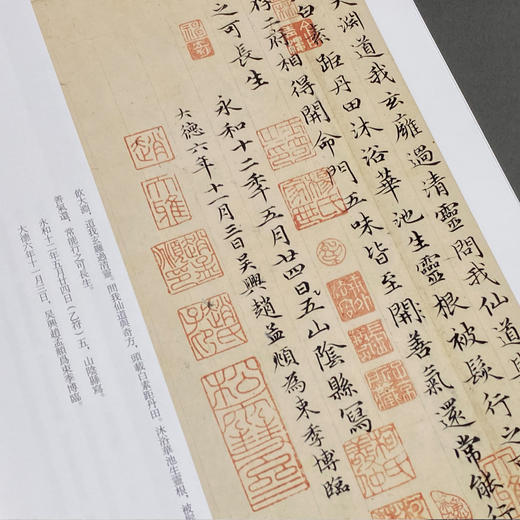 大淵道我玄廱過清靈問我仙道
白素距丹田沐浴華池生靈根被髮行之
存二府相得開命門五味皆至開善氣還常能行
之可長生
永和十二秊五月廿四日五山陰縣寫
大德六年十一月三日吳興趙孟頫為束季博臨
趙
大雅
趙氏
飲大淵、道我玄雍過清靈、問我仙道與奇方。頭載白素距丹田。沐浴華池生靈根，被髮
善氣還，常能行之可長生。
永和十二年五月廿四日（乙符）五，山陰縣寫。
大德六年十一月三日，吴興趙孟頫爲束季博臨。